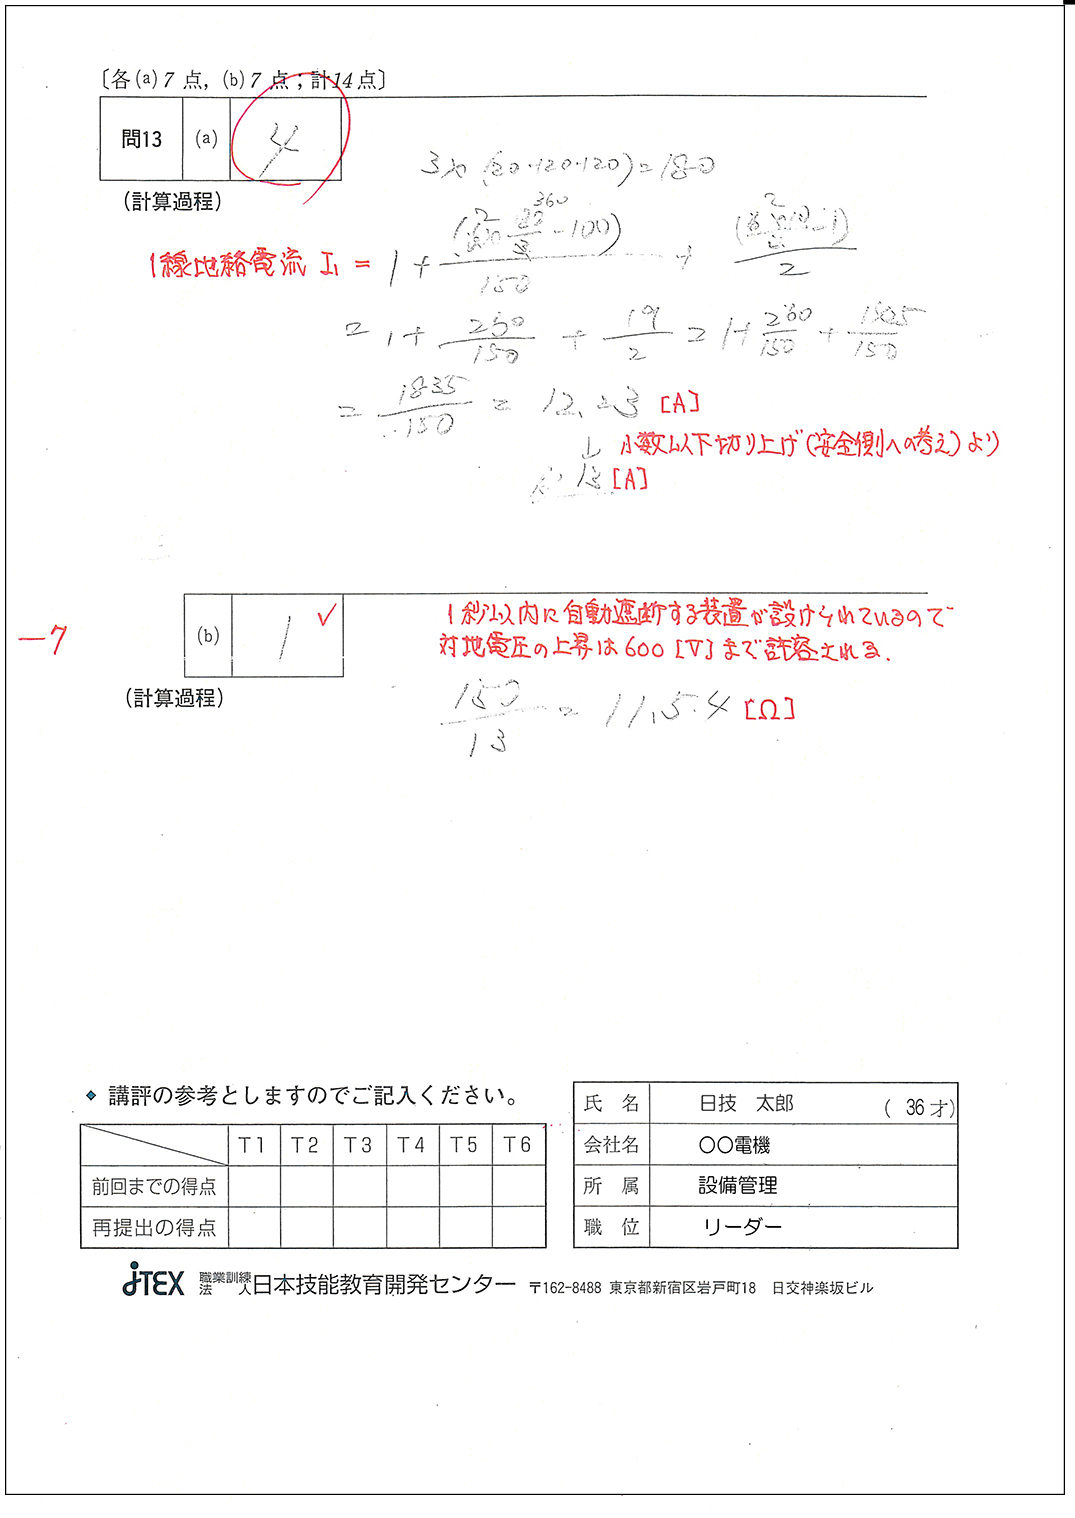 〔各(a)7点，(b)7点；計14点〕
問13 (a) 4
(計算過程)
1線地絡電流 I₁ = 1 +
150
2
= 1 + 260/150 + 19/2 = 1 + 260/150 + 1425/150
= 1835/150 = 12.23 [A]
↓ 小数以下切り上げ(安全側への考え)より
13 [A]
−7
(b) 1 ✓
1秒以内に自動遮断する装置が設けられているので
対地電圧の上昇は600 [V]まで許容される.
(計算過程)
150/13 = 11.54 [Ω]
◆ 講評の参考としますのでご記入ください。
T1 T2 T3 T4 T5 T6
前回までの得点
再提出の得点
氏 名 日技 太郎 ( 36才)
会社名 〇〇電機
所 属 設備管理
職 位 リーダー
JTEX 職業訓練法人 日本技能教育開発センター 〒162-8488 東京都新宿区岩戸町18 日交神楽坂ビル